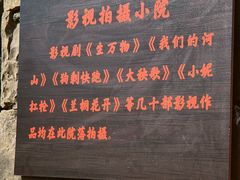 影视拍摄小院
影视剧《生万物》《我们的河
山》《狗剩快跑》《大秧歌》《小妮
扛枪》《兰桐花开》等几十部影视作
品均在此院落拍摄。